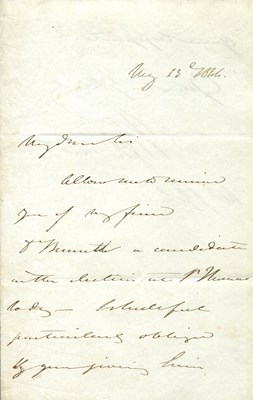 My dear Sir
Allow me to remind
you of my friend
Dr Bennett a candidate
in the election at St Thomas
today — I shall feel
particularly obliged
by your giving him